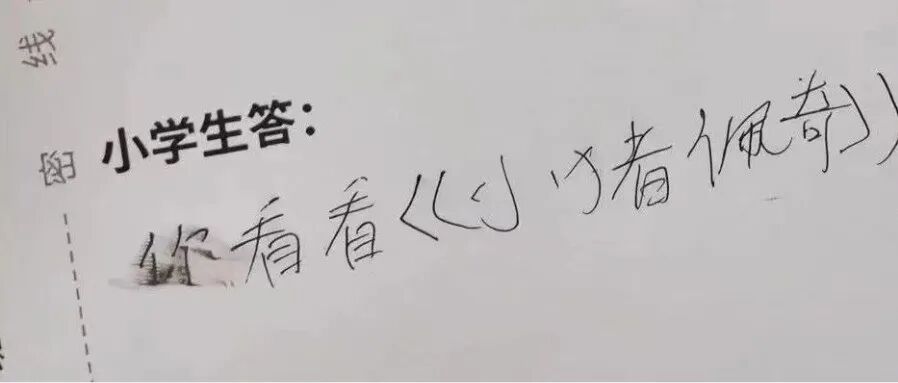 线
密
小学生答：
你看看《小猪佩奇》